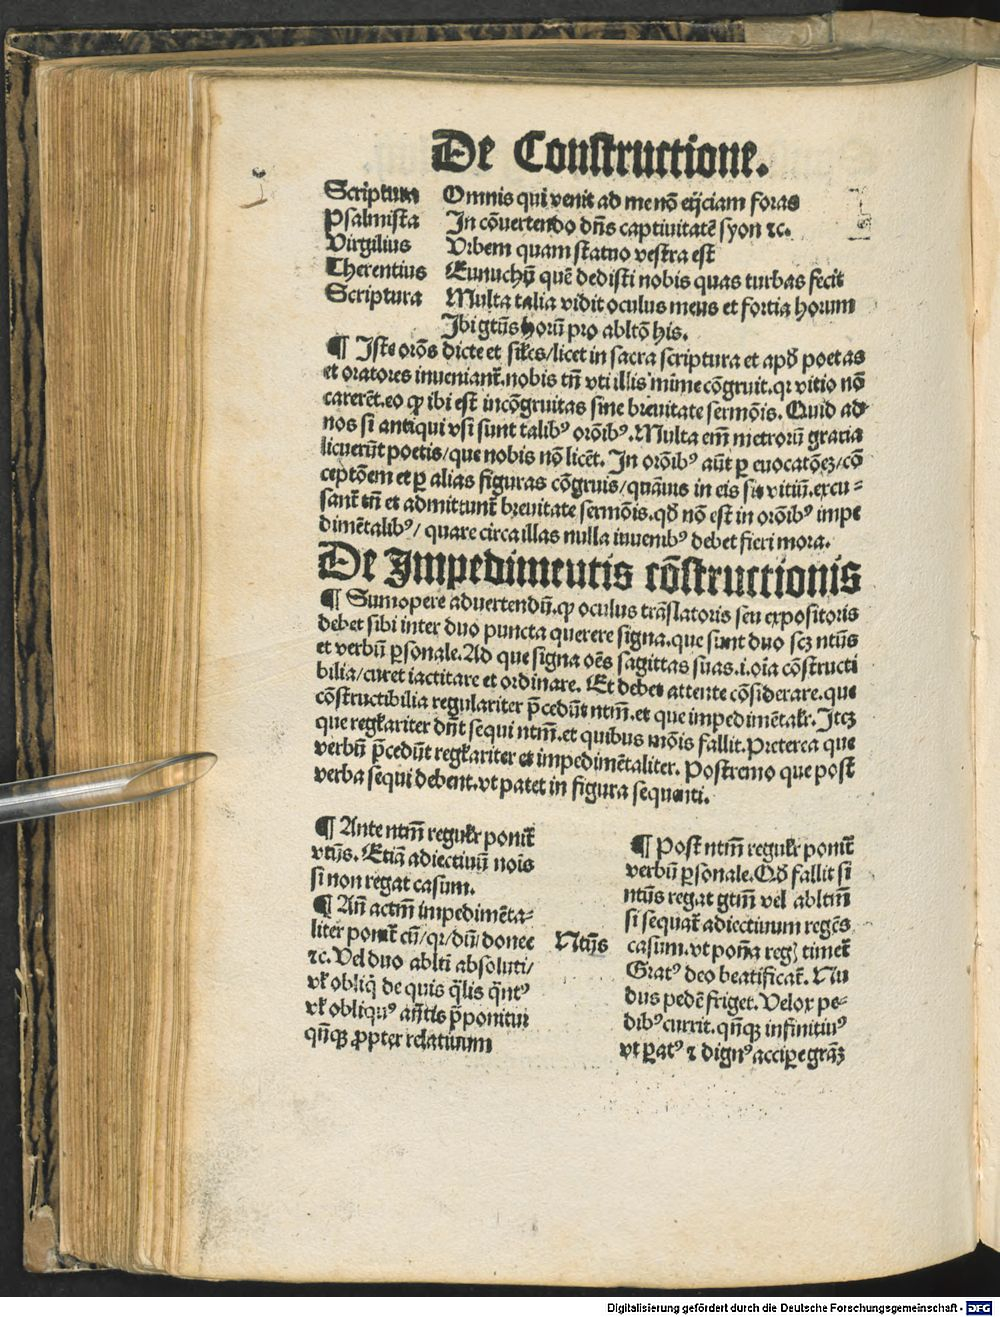 De Constructione.
Scriptum Omnis qui venit ad me nō eijciam foras
Psalmista In cōuertendo dn̄s captiuitatē syon ⁊c.
Virgilius Vrbem quam statuo vestra est
Therentius Eunuchū quē dedisti nobis quas turbas fecit
Scriptura Multa talia vidit oculus meus et fortia horum
Ibi gtūs horū pro abltō his.
¶ Iste orōs dicte et siłes/licet in sacra scriptura et apđ poetas
et oratores inueniant᷑.nobis tn̄ vti illis mīme cōgruit.qr vitio nō
carerēt.eo ꝙ ibi est incōgruitas sine breuitate sermōis. Quid ad
nos si antiqui vsi sunt talibꝰ orōibꝰ.Multa em̄ metrorū gratia
licuerūt poetis/que nobis nō licēt. In orōibꝰ aūt ꝑ euocatōeꝫ/cō
ceptōem et ꝑ alias figuras cōgruis/quāuis in eis sit vitiū.excu-
sant᷑ tn̄ et admittunt᷑ breuitate sermōis.qđ nō est in orōibꝰ impe
dimētalibꝰ/ quare circa illas nulla iuuenibꝰ debet fieri mora.
De Impedimentis cōstructionis
¶ Sumopere aduertendū.ꝙ oculus trāslatoris seu expositoris
debet sibi inter duo puncta querere signa.que sunt duo scꝫ ntūs
et verbū ꝑsonale.Ad que signa oēs sagittas suas.i.oīa cōstructi
bilia/curet iactitare et ordinare. Et debet attente cōsiderare.que
cōstructibilia regulariter p̄cedūt ntm̄.et que impedimētalr. Iteꝫ
que regłariter dn̄t sequi ntm̄.et quibus mōis fallit.Preterea que
verbū p̄cedūt regłariter et impedimētaliter. Postremo que post
verba sequi debent.vt patet in figura sequenti.
¶ Ante ntm̄ regulr ponit᷑
vtūs. Etiā adiectiuū nois
si non regat casum.
¶ An̄ actm̄ impedimēta-
liter ponit᷑ cū/qr/dū/donec
⁊c. Vel duo ablti absoluti/
vł obliqꝰ de quis q̄lis q̄ntꝰ
vł obliquꝰ an̄tis p̄ponitur
qn̄qꝫ ꝓpter relatiuum
Ntūs
¶ Post ntm̄ regulr ponit᷑
verbū ꝑsonale.Qđ fallit si
ntūs regat gtm̄ vel abltm̄
si sequat᷑ adiectiuum regēs
casum.vt pon̄a reg/ timet᷑
Gratꝰ deo beatificat᷑. Nu
dus pedē friget. Velox pe-
dibꝰ currit. qn̄qꝫ infinitiuꝰ
vt ꝑatꝰ ⁊ dignꝰ acciꝑe grāꝫ
Digitalisierung gefördert durch die Deutsche Forschungsgemeinschaft - DFG